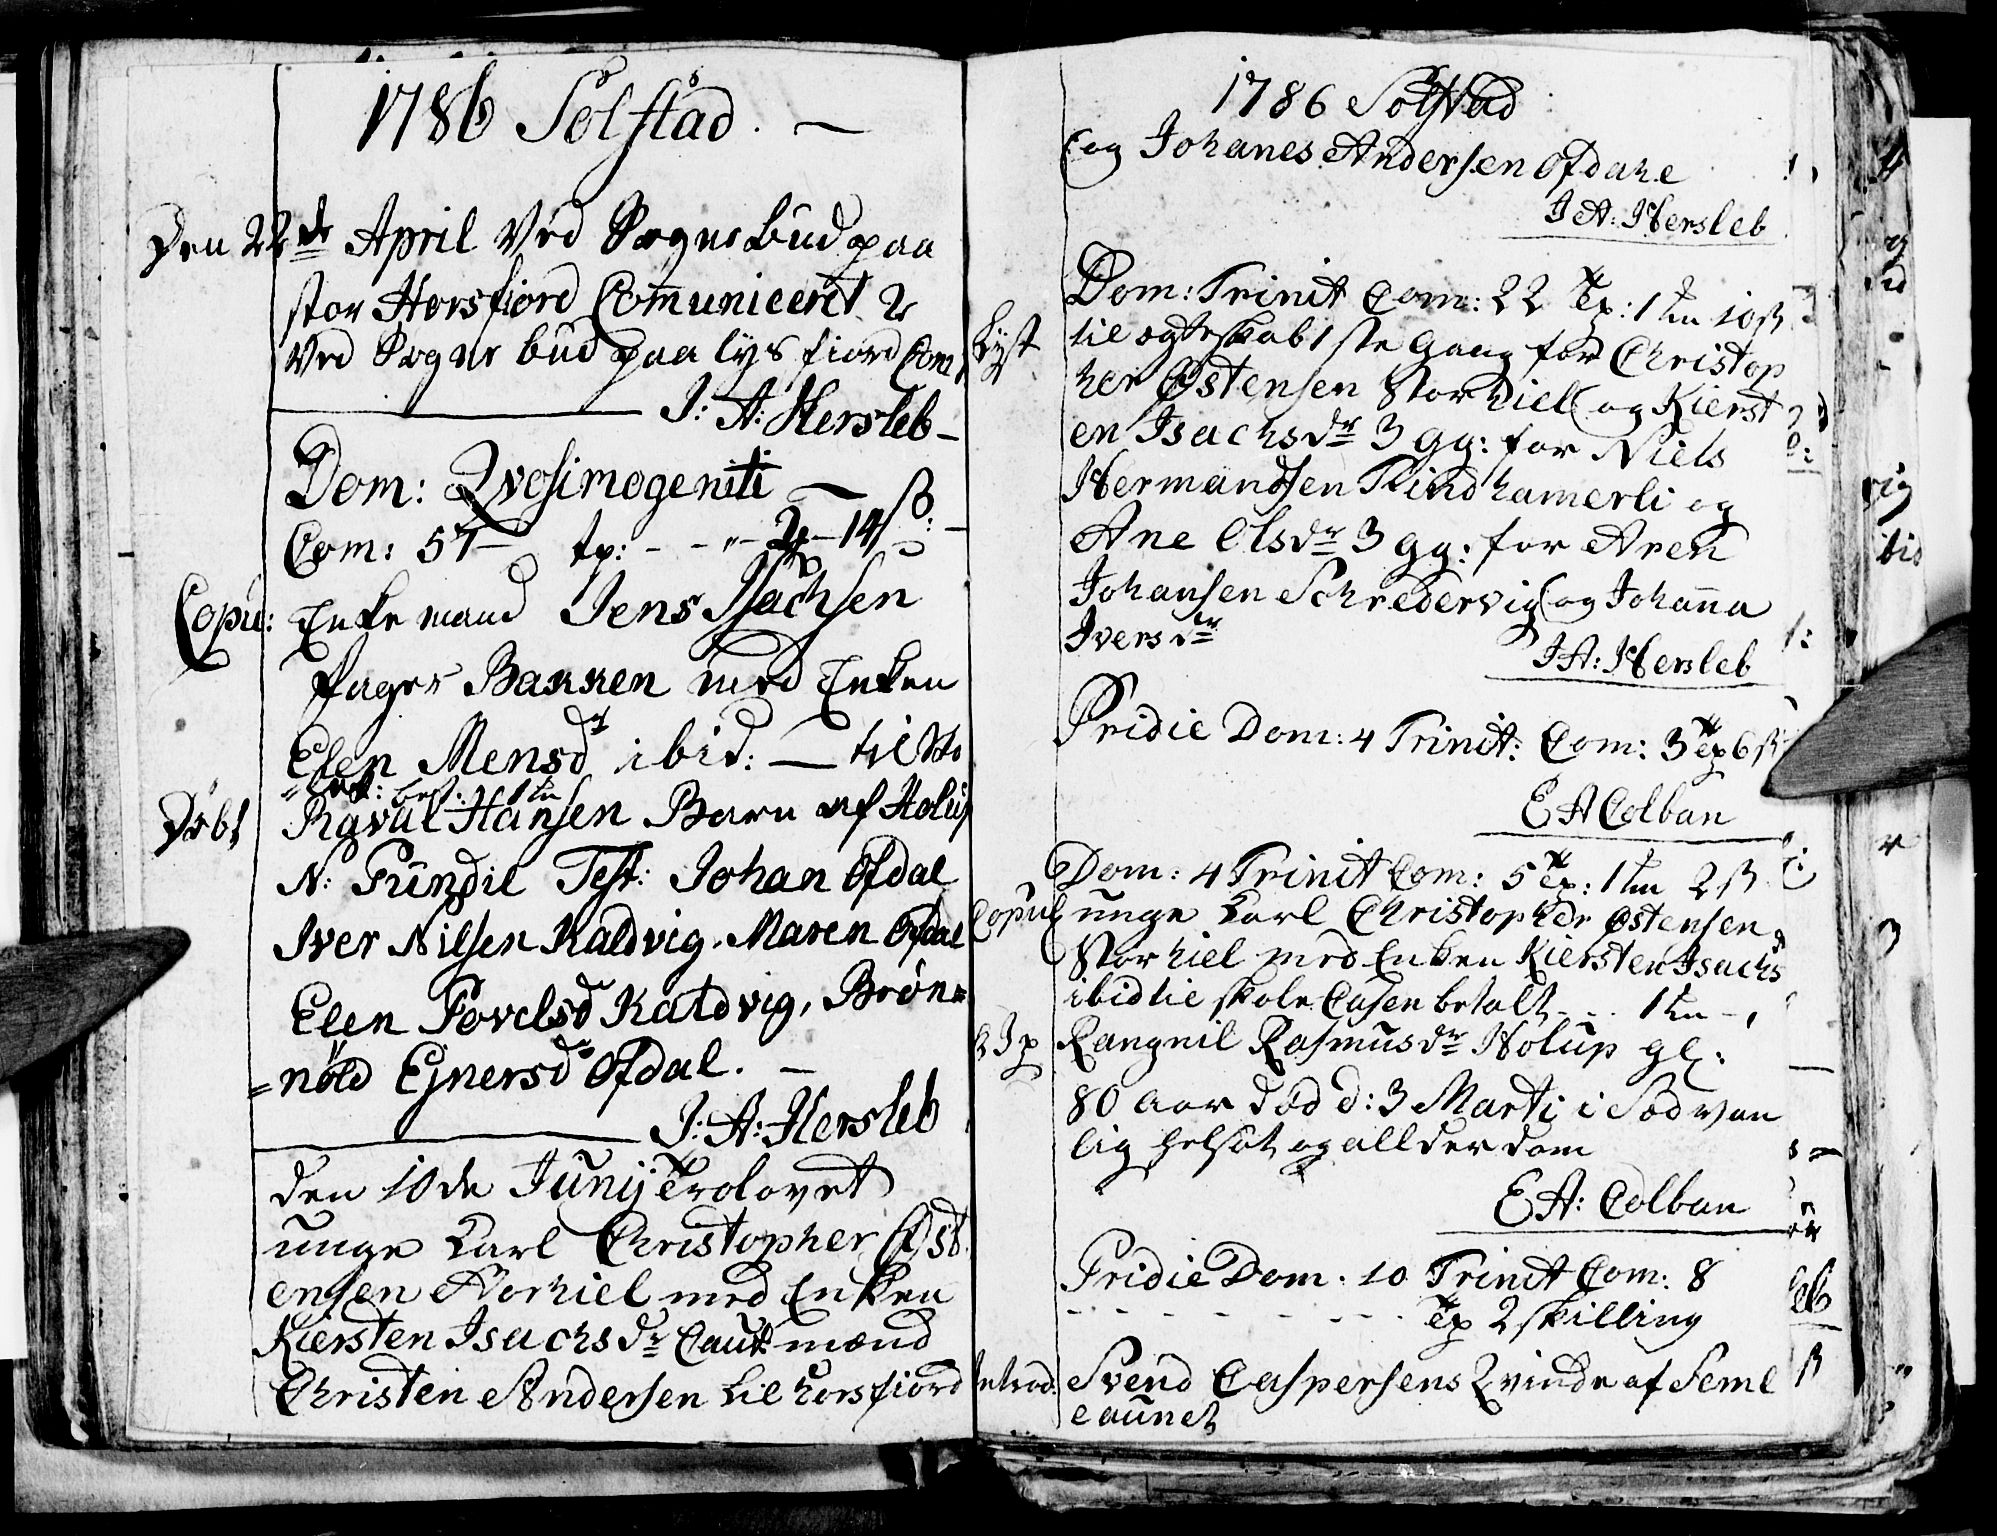 1786 Solstad. —
Den 22de April Ved Sogne bud paa
stor Horsfiord Comuniceret 2
Ved Sogne bud paa lysfiord Com 1
J: A: Hersleb –
Dom: Qvosimogeniti —
Com: 57 – tp: - - " – 2 – 14 ß: –
Copu: Enke mand Jens Isachsen
fager Bakken med Enken
Elen Mensdr ibid: — til
bet: 1 tm
Døbt Ravul Hansen Barn af Holup
N: Pundil Test: Johan Ofdal
Iver Nilsen Kaldvig, Maren Ofdal
Elen Povelsdr Kaldvig, Brøn=
=nild Ejnersdr Ofdal. —
J: A: Hersleb
den 10de Junij Trolovet
unge Karl Christopher Øst
ensen Storhiel med Enken
Kiersten Isachsdr Caut: mænd
Christen Andersen lil horsfiord
1786 Solstad
og Johanes Andersen Ofdahl
J A: Hersleb
Dom: Trinit Com: 22 Tp: 1 tm 10 ß
Lyst til egteskab 1ste Gang for Christop
her Østensen Storhiel og Kierst
en Isachsdr 3 gg: for Niels
Hermandsen Rindhamerli og
Ane Olsdr 3 gg: for Aren
Johansen Schredervig og Johanna
Iversdr
J A: Hersleb
Pridie Dom: 4 Trinit: Com: 3 Tp 6 ß
E A Colban
Dom: 4 Trinit Com: 5 Tp: 1 tm 2 ß
Copul unge Karl Christopher Østensen
Storhiel med Enken Kiersten Isachs
ibid til skole Casen betalt - - . 1 tm - ,
Rangnil Rasmusdr Holup gl:
80 aar død d: 3 Marti i Sædvan
lig helsot og allderdom
E A: Colban
Pridie Dom: 10 Trinit Com: 8
- - - - - - - - Tp 2 skilling
Introd. Svend Caspersens Qvinde af Seml
eaunet